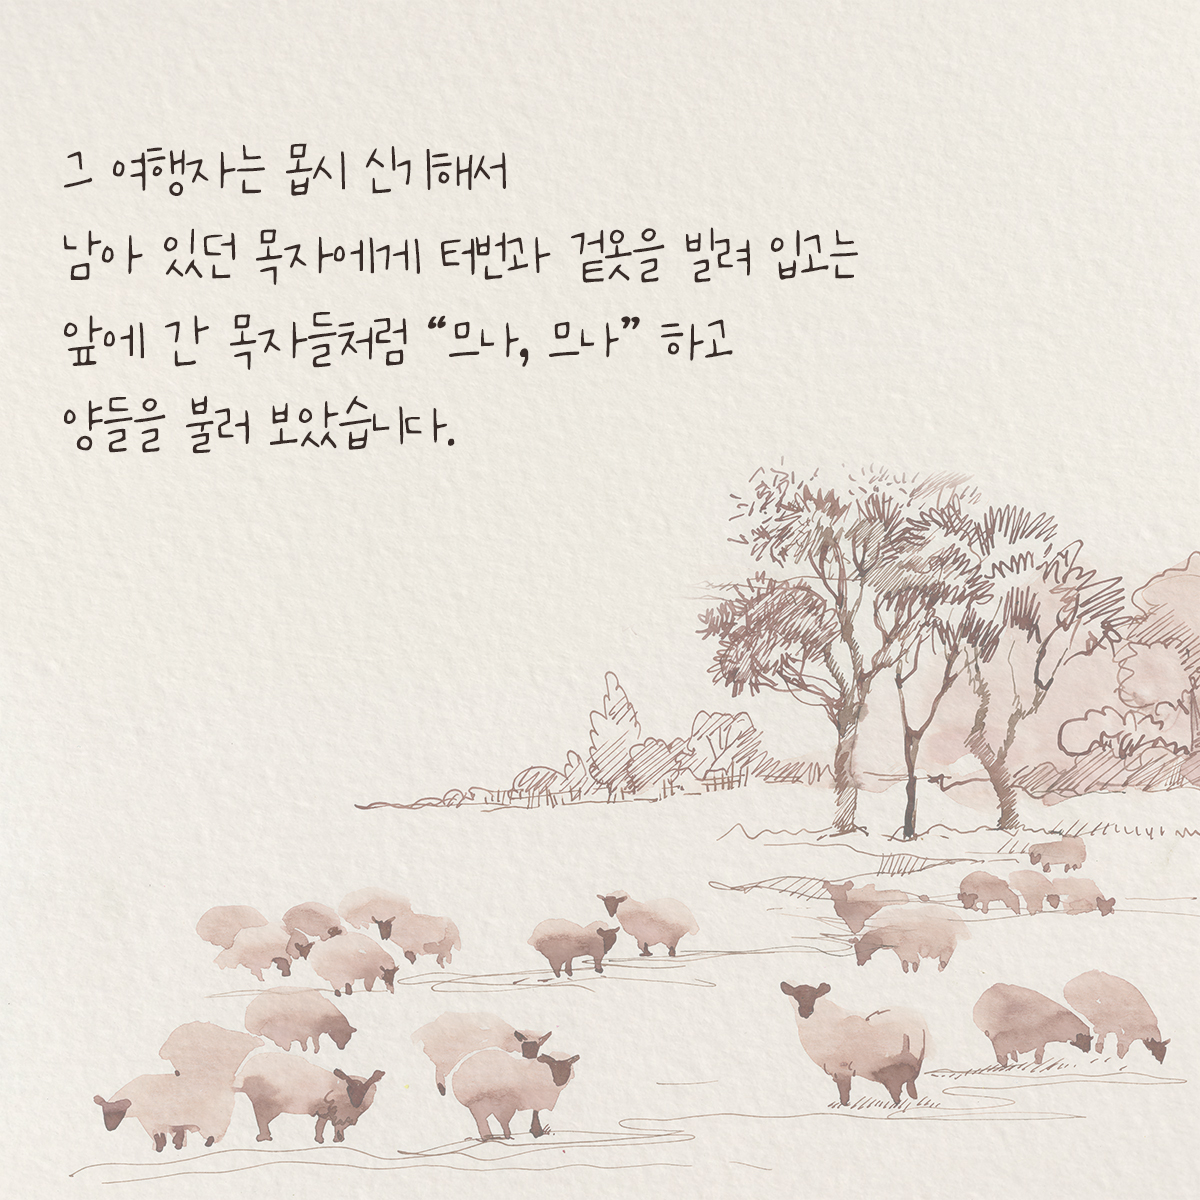 그 여행자는 몹시 신기해서
남아 있던 목자에게 터번과 겉옷을 빌려 입고는
앞에 간 목자들처럼 “므나, 므나” 하고
양들을 불러 보았습니다.